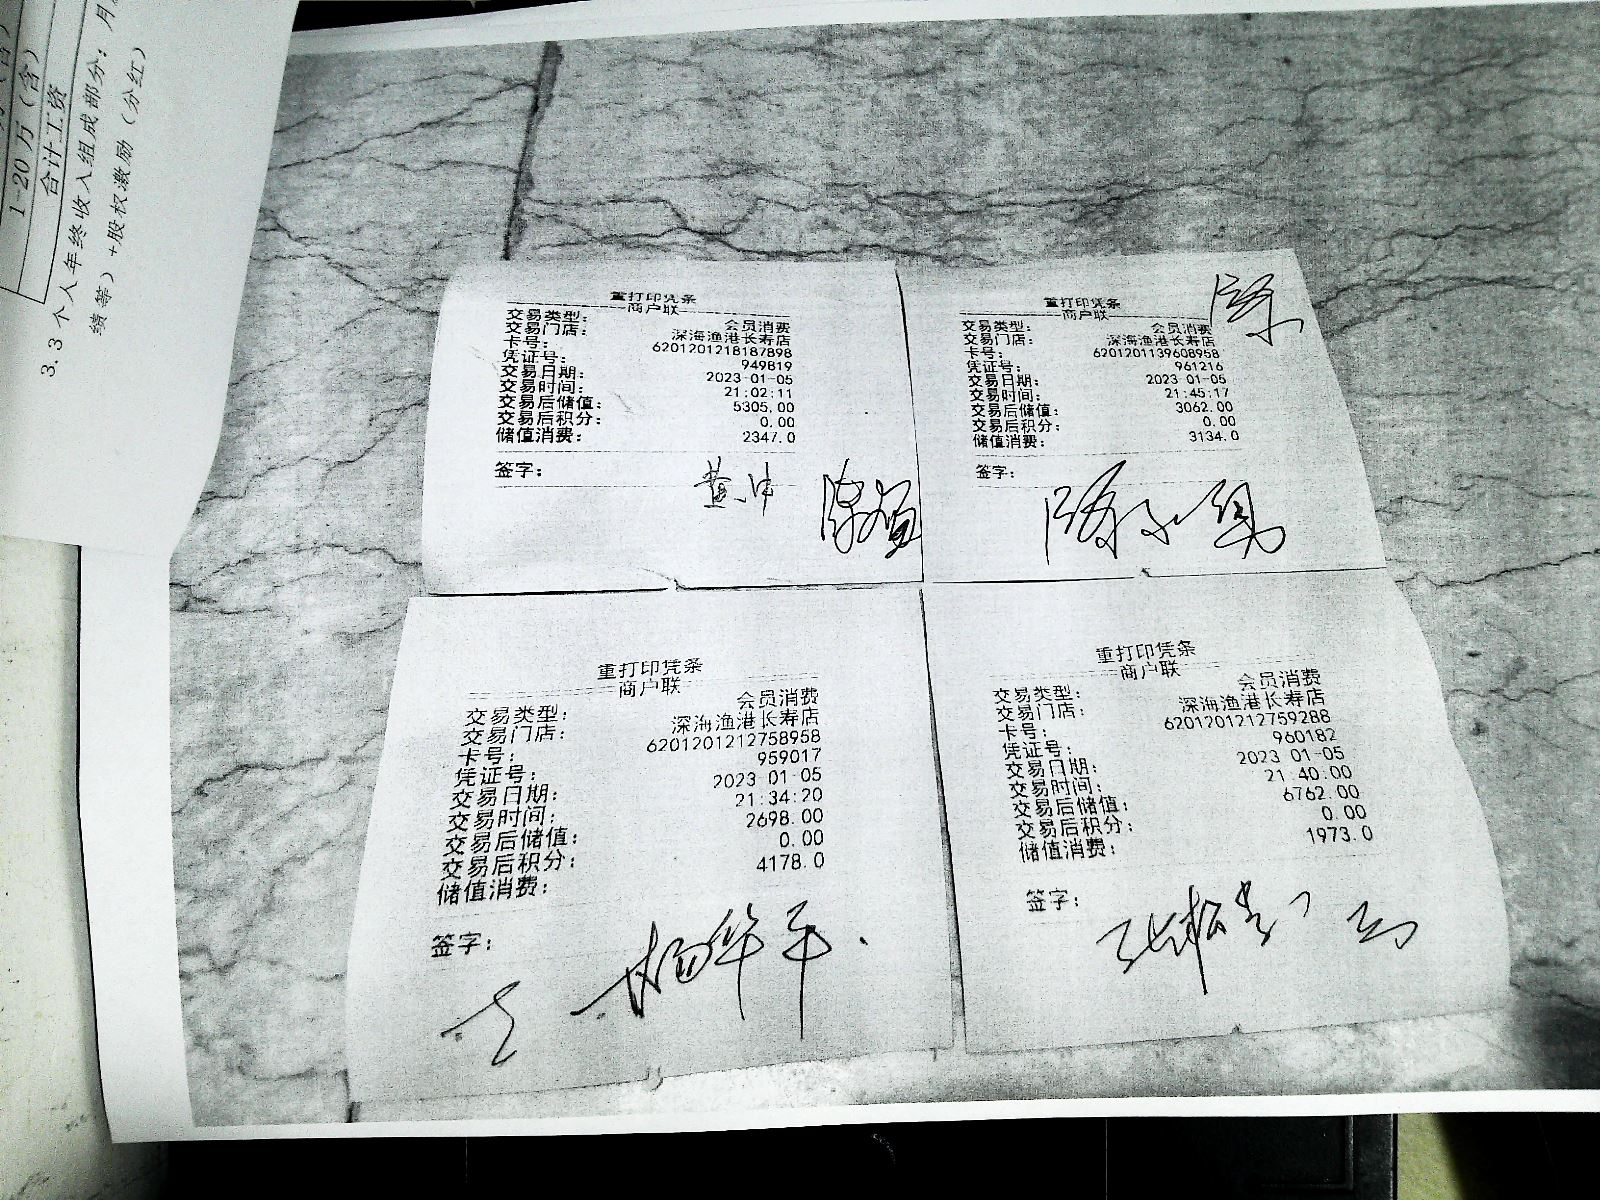 1-20万(含)
合计工资
3.3 个人年终收入组成部分：月
绩等）+股权激励（分红）
重打印凭条
商户联
交易类型： 会员消费
交易门店： 深海渔港长寿店
卡号： 6201201218187898
凭证号： 949819
交易日期： 2023-01-05
交易时间： 21:02:11
交易后储值： 5305.00
交易后积分： 0.00
储值消费： 2347.0
签字：
重打印凭条
商户联
交易类型： 会员消费
交易门店： 深海渔港长寿店
卡号： 6201201139608958
凭证号： 961216
交易日期： 2023-01-05
交易时间： 21:45:17
交易后储值： 3062.00
交易后积分： 0.00
储值消费： 3134.0
签字：
重打印凭条
商户联
交易类型： 会员消费
交易门店： 深海渔港长寿店
卡号： 6201201212758958
凭证号： 959017
交易日期： 2023-01-05
交易时间： 21:34:20
交易后储值： 2698.00
交易后积分： 0.00
储值消费： 4178.0
签字：
杨华平
重打印凭条
商户联
交易类型： 会员消费
交易门店： 深海渔港长寿店
卡号： 6201201212759288
凭证号： 960182
交易日期： 2023-01-05
交易时间： 21:40:00
交易后储值： 6762.00
交易后积分： 0.00
储值消费： 1973.0
签字：